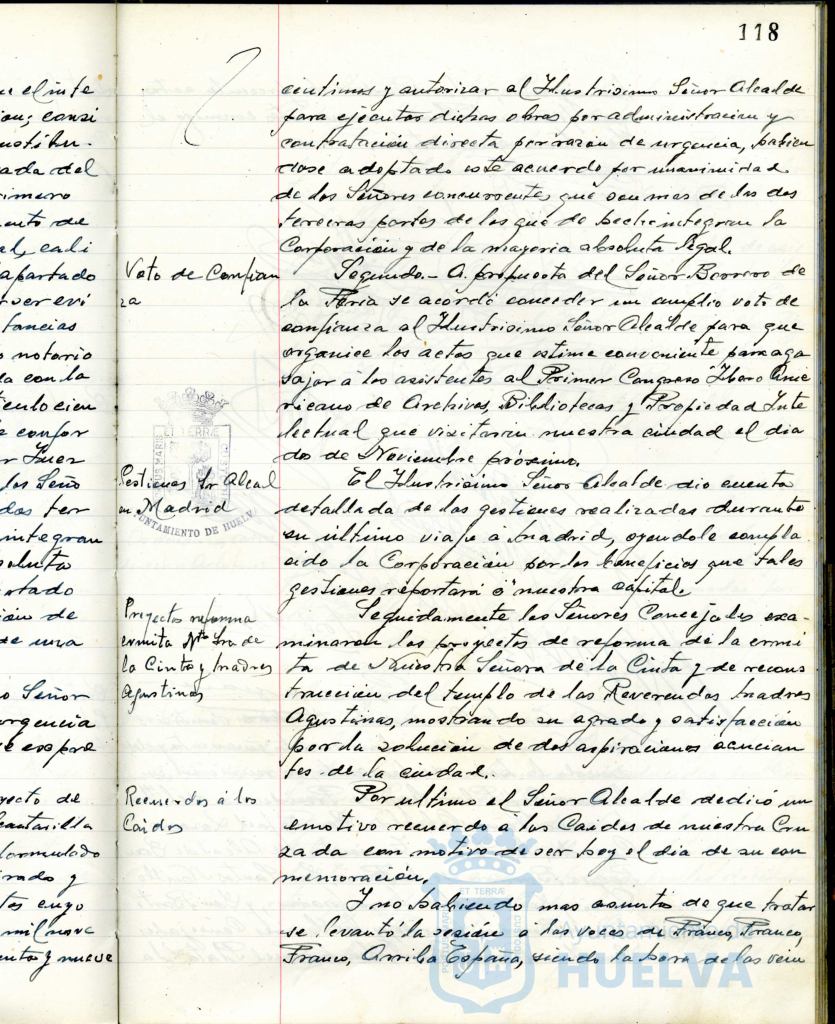 118
u el inte
ion; consi
ustitu-
ada del
rimero
ento de
al, cali
apartado
tancias
o notario
a con la
e confor
r Juez
los Seño
dos ter
integran
soluta
ion de
de una
o Señor
urgencia
e expre
yecto de
formulado
rado y
tos cuyo
mil nove
entos y nueve
centimos y autorizar al Ilustrisimo Señor Alcalde
para ejecutar dichas obras por administracion y
contratación directa por razon de urgencia, habien
dose adoptado este acuerdo por unanimidad
de los Señores concurrentes que son mas de las dos
terceras partes de los que de hecho integran la
Corporación y de la mayoria absoluta legal.
Voto de Confian
za
Segundo.- A propuesta del Señor Borrero de
la Feria se acordó conceder un amplio voto de
confianza al Ilustrisimo Señor Alcalde para que
organice los actos que estime conveniente para aga
sajar á los asistentes al Primer Congreso Ibero Ame
ricano de Archivos, Bibliotecas y Propiedad Inte
lectual que visitarán nuestra ciudad el dia
dos de Noviembre próximo.
Gestiones Sr Alcal
en Madrid
El Ilustrisimo Señor Alcalde dio cuenta
detallada de las gestiones realizadas durante
su último viaje á Madrid, oyendole compla
cido la Corporación por los beneficios que tales
gestiones reportará á nuestra capital.
Proyectos reforma
ermita Ntra Sra de
la Cinta y Madres
Agustinas
Seguidamente los Señores Concejales exa-
minaron los proyectos de reforma de la ermi
ta de Nuestra Señora de la Cinta y de recons
trucción del templo de las Reverendas Madres
Agustinas, mostrando su agrado y satisfacción
por la solucion de dos aspiraciones acucian
tes de la ciudad.
Recuerdos á los
Caidos
Por ultimo el Señor Alcalde dedicó un
emotivo recuerdo á los Caidos de nuestra Cru
zada con motivo de ser hoy el dia de su con
memoración.
Y no habiendo mas asuntos de que tratar
se levantó la sesión a las voces de Franco, Franco,
Franco, Arriba España, siendo la hora de las vein
AYUNTAMIENTO DE HUELVA
Ayuntamiento de
HUELVA